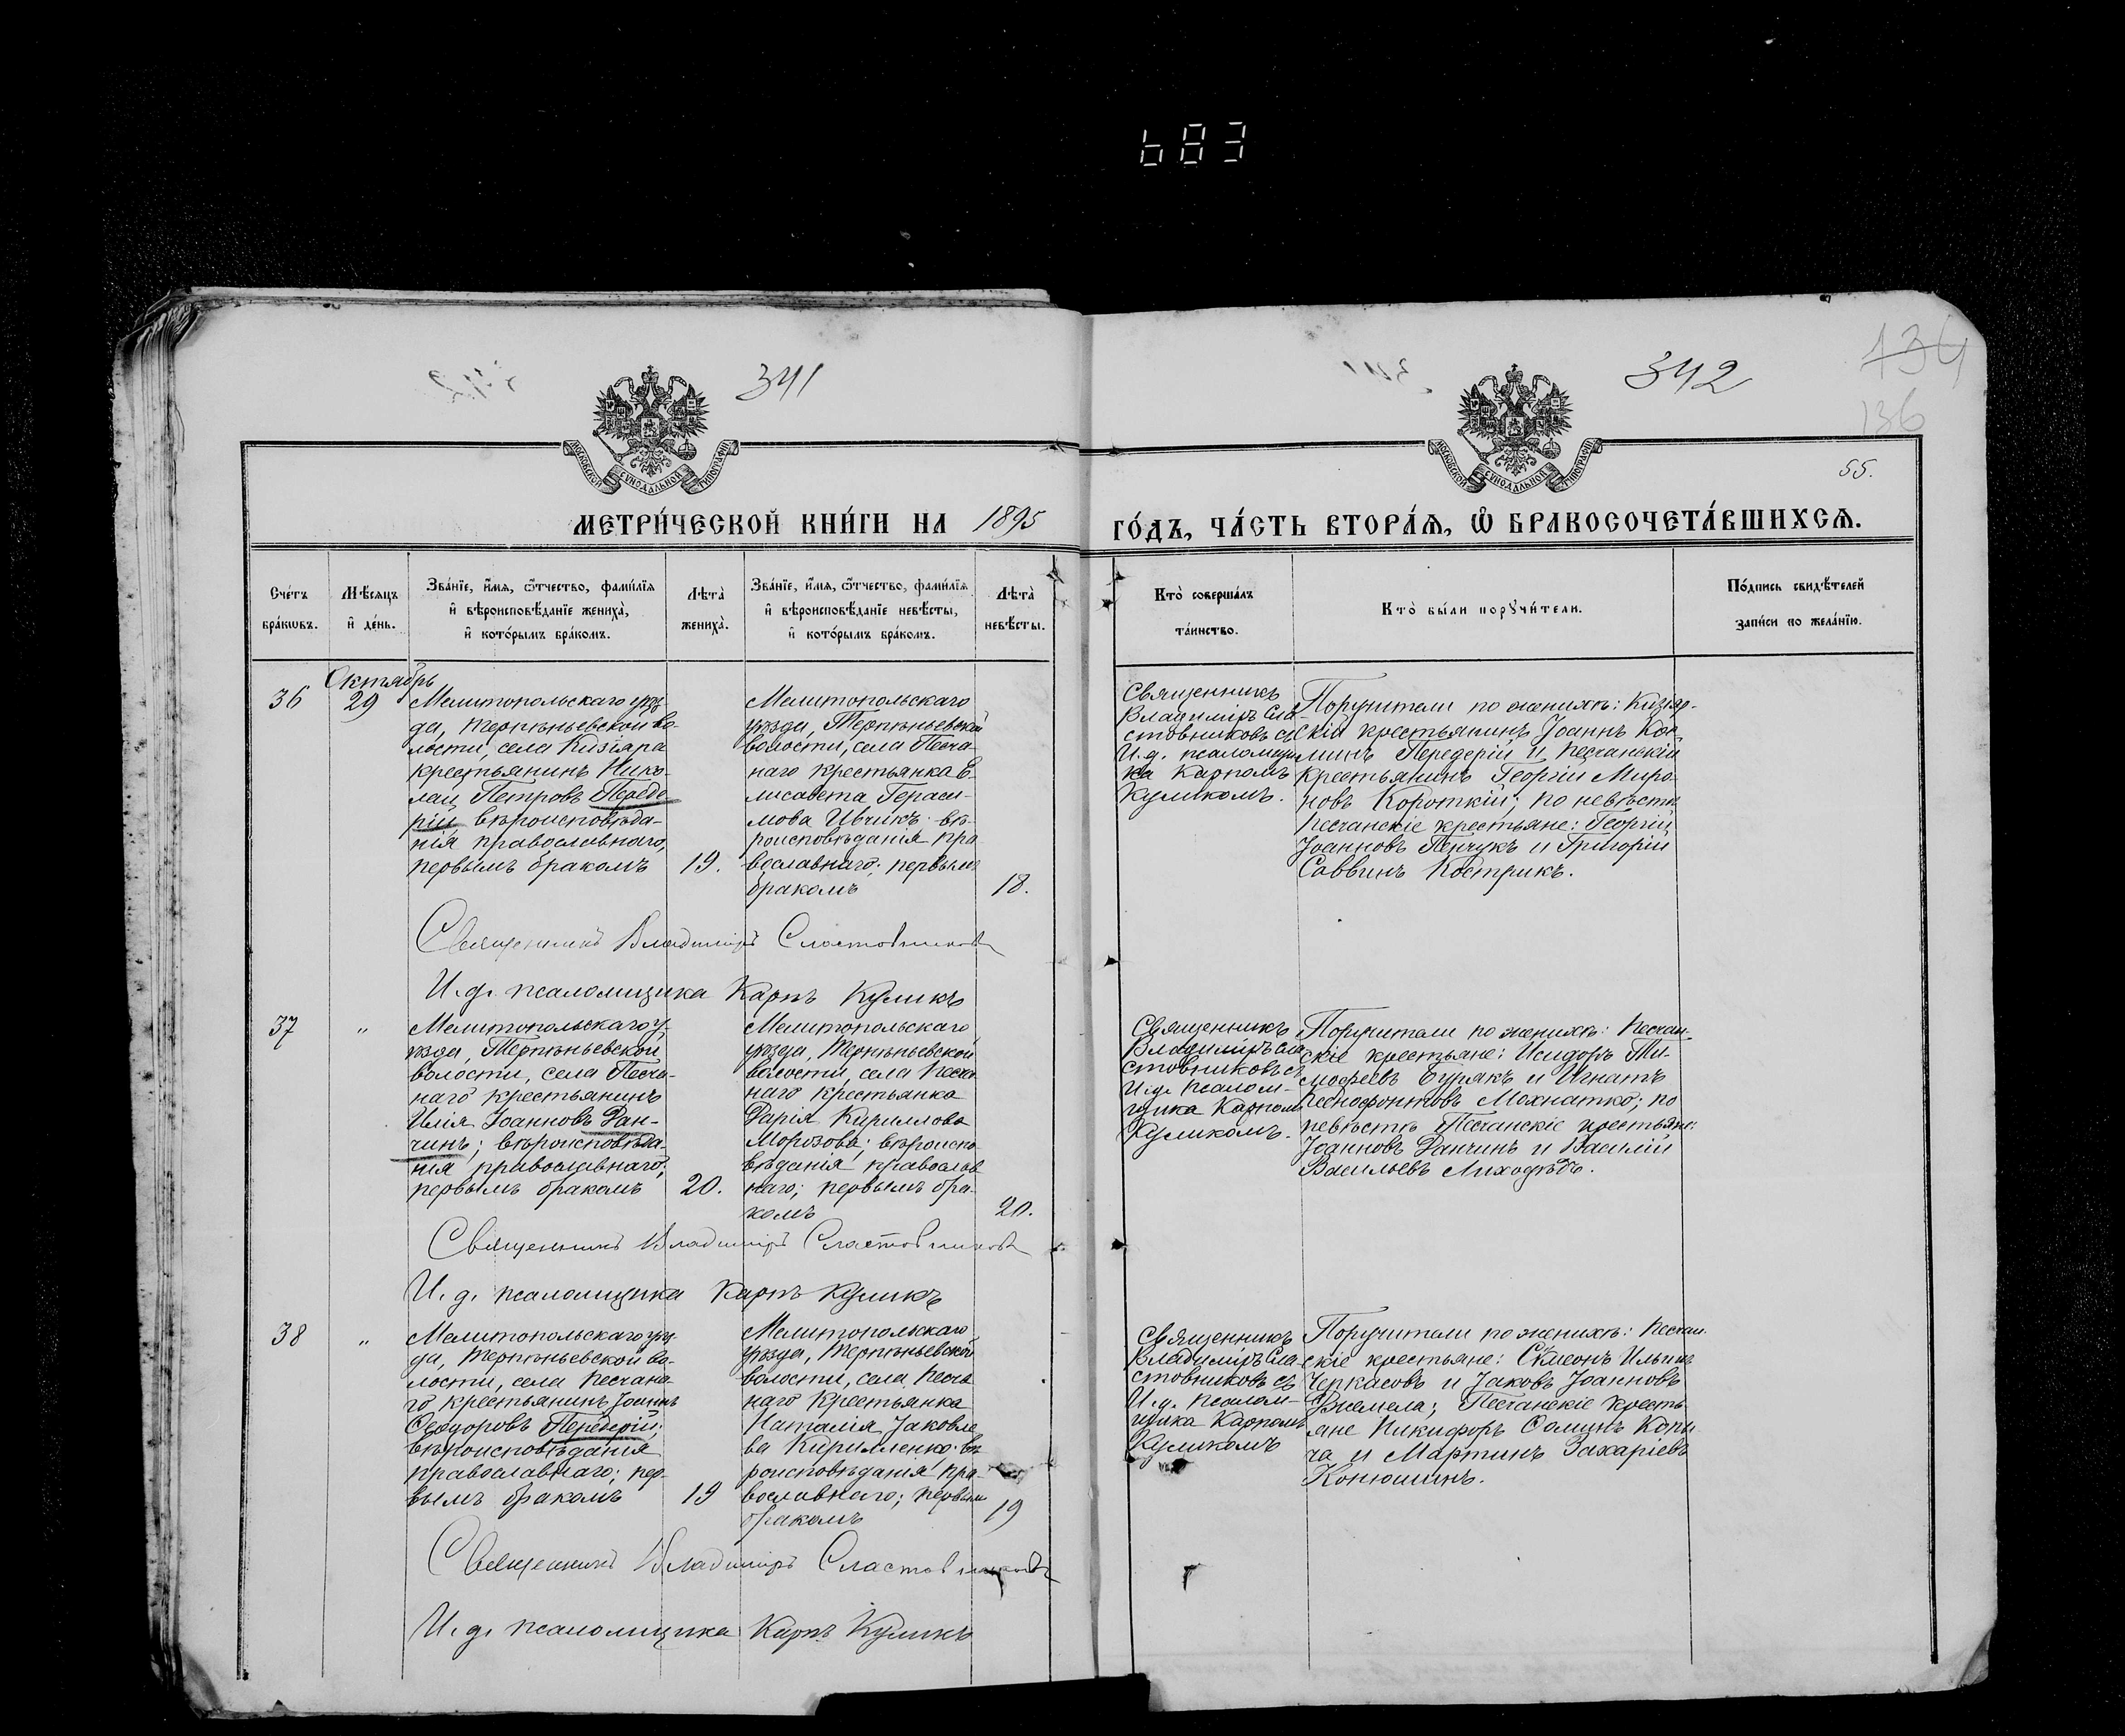 683
341
342
134
136
МОСКОВСКОЙ СѴНОДАЛЬНОЙ ТИПОГРАФІИ
МОСКОВСКОЙ СѴНОДАЛЬНОЙ ТИПОГРАФІИ
55.
МЕТРИ́ЧЕСКОЙ КНИ́ГИ НА 1895 ГО́ДЪ, ЧА́СТЬ ВТОРА́Я, Ѡ БРАКОСОЧЕТА́ВШИХСѦ.
Сче́тъ бра́кѡвъ.
Мѣ́сяцъ и҆ де́нь.
Зва́нїе, и҆́мѧ, ѻ҆́тчество, фами́лїѧ и҆ вѣроисповѣ́данїе жениха̀, и҆ кото́рымъ бра́комъ.
Лѣ́та жениха̀.
Зва́нїе, и҆́мѧ, ѻ҆́тчество, фами́лїѧ и҆ вѣроисповѣ́данїе невѣ́сты, и҆ кото́рымъ бра́комъ.
Лѣ́та невѣ́сты.
Кто̀ соверша́лъ та́инство.
Кто̀ бы́ли поручи́тели.
По́дпись свидѣ́телей за́писи по жела́нїю.
Октябрь
36
29
Мелитопольскаго уѣз-
да, Терпѣньевской во-
лости, села Кизіяра
крестьянинъ Нико-
лай Петровъ Переде
рій вѣроисповѣда-
нія православнаго,
первымъ бракомъ
19.
Мелитопольскаго
уѣзда, Терпѣньевской
волости, села Песча-
наго крестьянка Е-
лисавета Гераси-
мова Ивчикъ вѣ-
роисповѣданія пра
вославнаго; первымъ
бракомъ
18.
Священникъ
Владиміръ Сла-
стовниковъ съ
И.д. псаломщи
ка Карпомъ
Куликомъ.
Поручители по женихѣ: Кизіяр-
скій крестьянинъ Іоаннъ Коз
минъ Передерій и Песчанскій
крестьянинъ Георгій Миро
новъ Короткій; по невѣстѣ
Песчанскіе крестьяне: Георгій
Іоанновъ Пенчукъ и Григорій
Саввинъ Кострикъ.
Священникъ Владиміръ Сластовниковъ
И.д. псаломщика Карпъ Куликъ
37
"
Мелитопольскаго у-
ѣзда, Терпѣньевской
волости, села Песча-
наго крестьянинъ
Илія Іоанновъ Дан-
чинъ; вѣроисповѣда-
нія православнаго;
первымъ бракомъ
20.
Мелитопольскаго
уѣзда, Терпѣньевской
волости, села Песча
наго крестьянка
Дарія Кириллова
Морозова; вѣроиспо
вѣданія православ
наго; первымъ бра-
комъ
20.
Священникъ
Владиміръ Сла
стовниковъ съ
И.д. псалом-
щика Карпомъ
Куликомъ.
Поручители по женихѣ: Песчан-
скіе крестьяне: Исидоръ Ти-
моѳеевъ Бурякъ и Игнатъ
Ксенофонтовъ Мохнатко; по
невѣстѣ Песчанскіе крестьяне:
Іоанновъ Данчинъ и Василій
Васильевъ Лиходѣдъ.
Священникъ Владиміръ Сластовниковъ
И.д. псаломщика Карпъ Куликъ
38
"
Мелитопольскаго уѣз
да, Терпѣньевской во-
лости, села Песчана
го крестьянинъ Іоаннъ
Ѳеодоровъ Передерій;
вѣроисповѣданія
православнаго; пер-
вымъ бракомъ
19
Мелитопольскаго
уѣзда, Терпѣньевской
волости, села Песча
наго крестьянка
Наталія Іаковле
ва Кириленко; вѣ
роисповѣданія пра-
вославнаго; первымъ
бракомъ
19
Священникъ
Владиміръ Сла-
стовниковъ съ
И.д. псалом-
щика Карпомъ
Куликомъ
Поручители по женихѣ: Песчан-
скіе крестьяне: Симеонъ Ильинъ
Черкасовъ и Іаковъ Іоанновъ
Песчанскіе кресть
яне Никифоръ
и Мартинъ Захаріевъ
Конюшинъ.
Священникъ Владиміръ Сластовниковъ
И.д. псаломщика Карпъ Куликъ